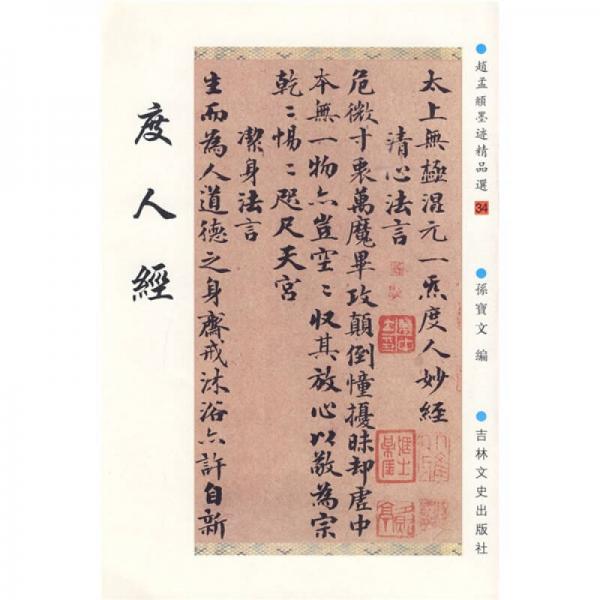 趙孟頫墨迹精品選 34
孫寶文 编
吉林文史出版社
太上無極混元一炁度人妙經
清心法言
危微寸衷萬魔畢攻顛倒憧擾昧却虛中
本無一物亦豈空〻収其放心以敬為宗
乾〻惕〻咫尺天宮
潔身法言
生而為人道德之身齋戒沐浴亦許自新
度人經